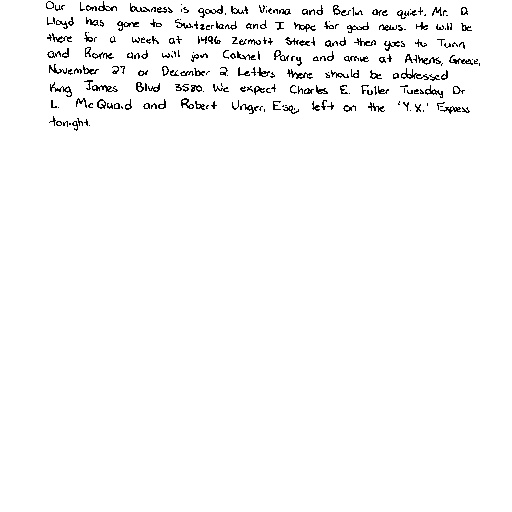 Our London business is good, but Vienna and Berlin are quiet. Mr. D.
Lloyd has gone to Switzerland and I hope for good news. He will be
there for a week at 1496 Zermott Street and then goes to Turin
and Rome and will join Colonel Parry and arrive at Athens, Greece,
November 27 or December 2. Letters there should be addressed
King James Blvd 3580. We expect Charles E. Fuller Tuesday. Dr
L. McQuaid and Robert Unger, Esq., left on the 'Y.X.' Express
tonight.